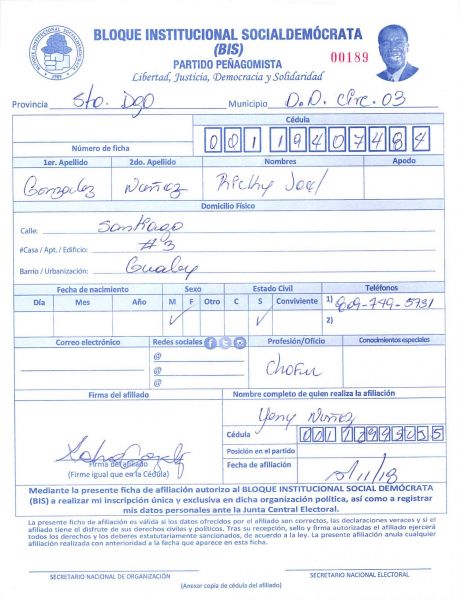 BLOQUE INSTITUCIONAL SOCIALDEMÓCRATA
(BIS)
PARTIDO PEÑAGOMISTA
00189
Libertad, Justicia, Democracia y Solidaridad
Provincia Sto. Dgo Municipio D.D. Circ. 03
Cédula
Número de ficha
1er. Apellido 2do. Apellido Nombres Apodo
Gonzalez Nuñez Richy Joel
Domicilio Físico
Calle: Santiago
#Casa / Apt. / Edificio: #3
Barrio / Urbanización: Gualey
Fecha de nacimiento Sexo Estado Civil Teléfonos
Día Mes Año M F Otro C S Conviviente 1) 809-749-5731
2)
Correo electrónico Redes sociales Profesión/Oficio Conocimientos especiales
@
@
@
Chofer
Firma del afiliado Nombre completo de quien realiza la afiliación
Yeny Nuñez
Cédula
Posición en el partido
Firma del afiliado
(Firme igual que en la Cédula)
Fecha de afiliación
Mediante la presente ficha de afiliación autorizo al BLOQUE INSTITUCIONAL SOCIAL DEMÓCRATA
(BIS) a realizar mi inscripción única y exclusiva en dicha organización política, así como a registrar
mis datos personales ante la Junta Central Electoral.
La presente ficha de afiliación es válida si los datos ofrecidos por el afiliado son correctos, las declaraciones veraces y si el
afiliado tiene el disfrute de sus derechos civiles y políticos. Tras su recepción, sello y firma autorizadas el afiliado ejercerá
todos los derechos y los deberes estatutariamente sancionados, de acuerdo a la ley. La presente afiliación anula cualquier
afiliación realizada con anterioridad a la fecha que aparece en esta ficha.
SECRETARIO NACIONAL DE ORGANIZACIÓN SECRETARIO NACIONAL ELECTORAL
(Anexar copia de cédula del afiliado)